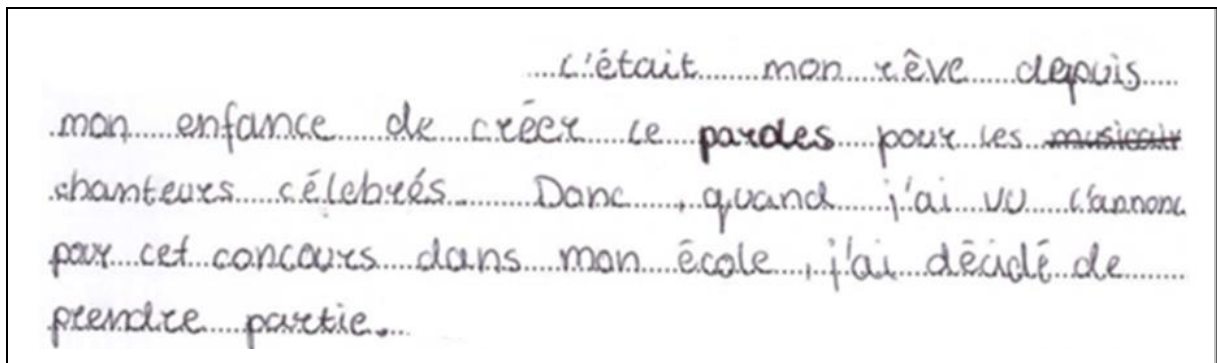 C'était mon rêve depuis
mon enfance de créer le paroles pour les musicair
chanteurs célebrés. Donc, quand j'ai vu l'annonc
pour cet concours dans mon école, j'ai décidé de
prendre partie.